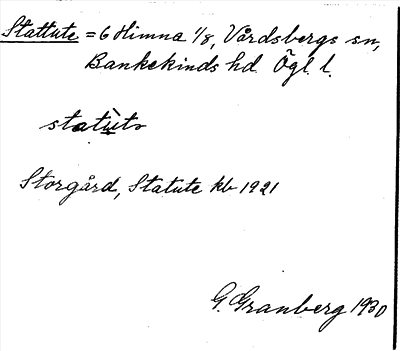 Stattute = 6 Himna 1/8, Vårdsbergs sn,
Bankekinds hd. Ögl. l.
statùto
Storgård, Statute kb 1921
G. Granberg 1930